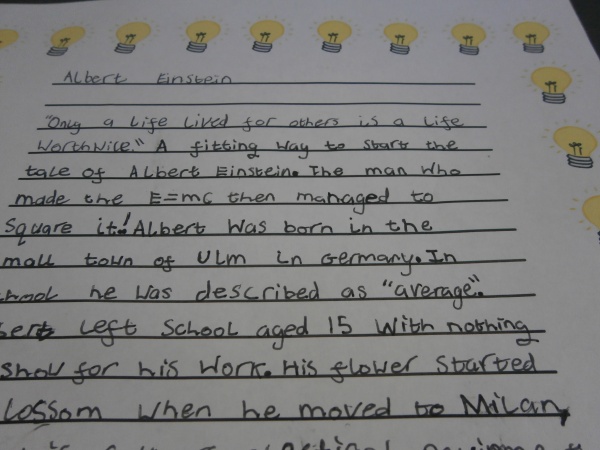 Albert Einstein
"Only a life lived for others is a life
worthwile." A fitting way to start the
tale of Albert Einstein. The man who
made the E=mc then managed to
square it! Albert was born in the
mall town of Ulm in Germany. In
he was described as "average".
left school aged 15 with nothing
show for his work. His flower started
lossom when he moved to Milan,